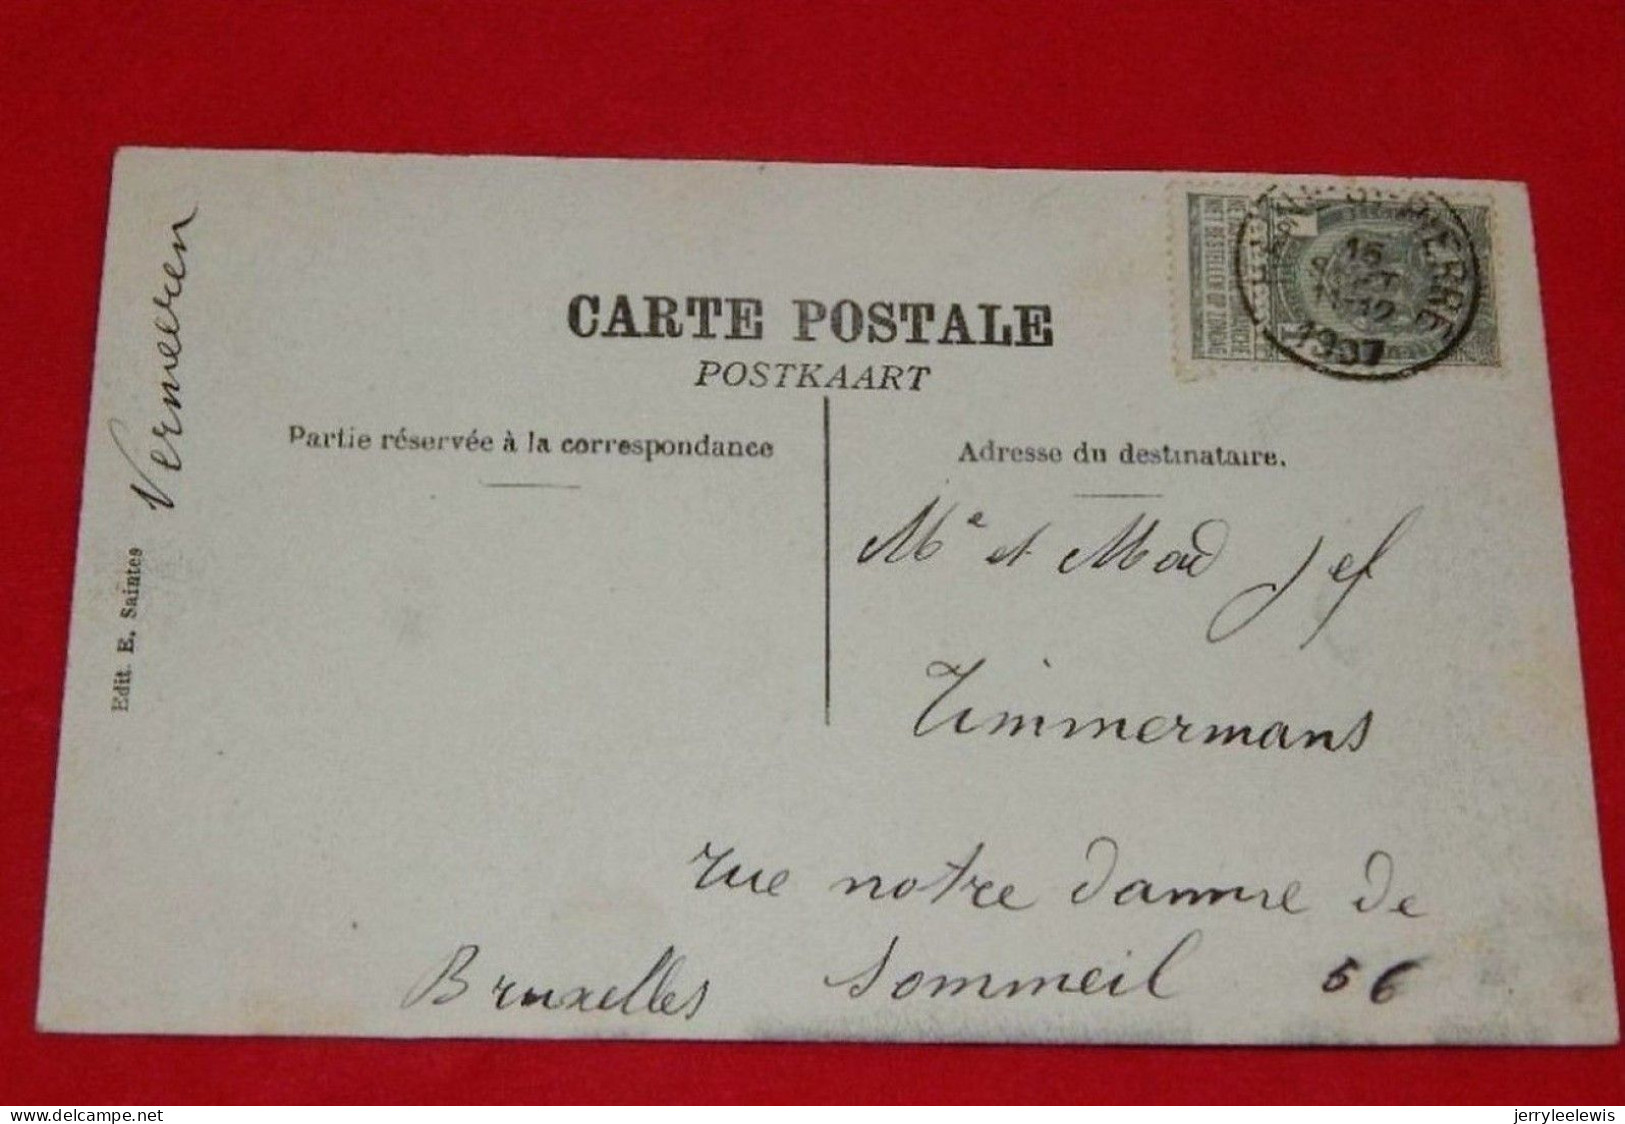 CARTE POSTALE
POSTKAART
Partie réservée à la correspondance
Adresse du destinataire.
Vermeeren
Edit. E. Saintes
Me et Mad Jef
Timmermans
rue notre damme de
Bruxelles Sommeil 56
NIET BESTELLEN OP ZONDAG
ST-PIERRE
15
11-12
1907
delcampe.net
jerryleelewis